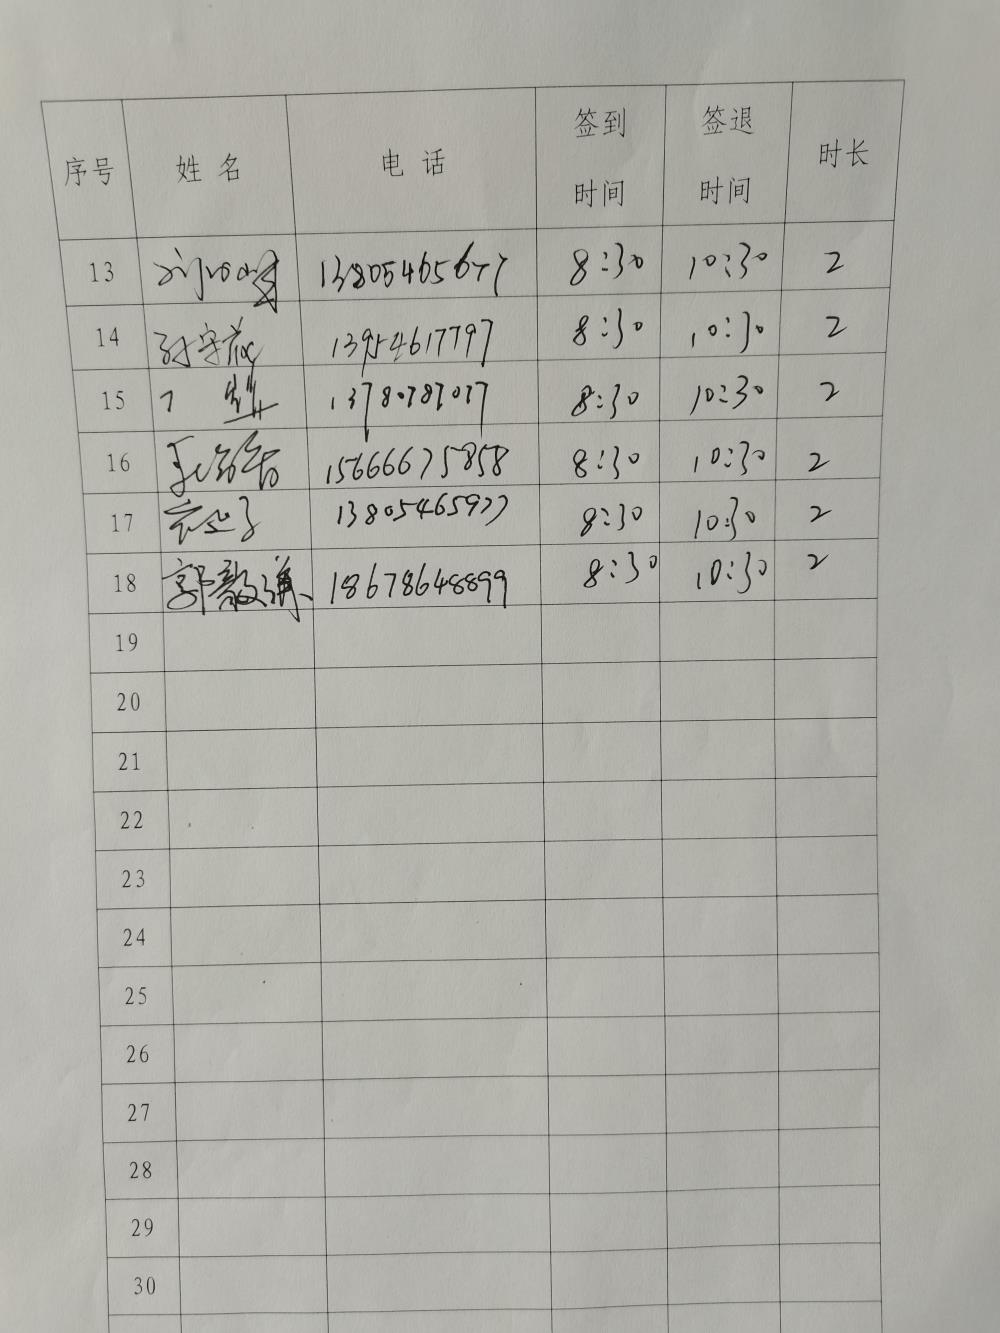 序号 姓名 电话 签到时间 签退时间 时长
13 13805465677 8:30 10:30 2
14 13954617797 8:30 10:30 2
15 13780787077 8:30 10:30 2
16 15666675858 8:30 10:30 2
17 13805465977 8:30 10:30 2
18 郭毅谦 18678648899 8:30 10:30 2
19
20
21
22
23
24
25
26
27
28
29
30